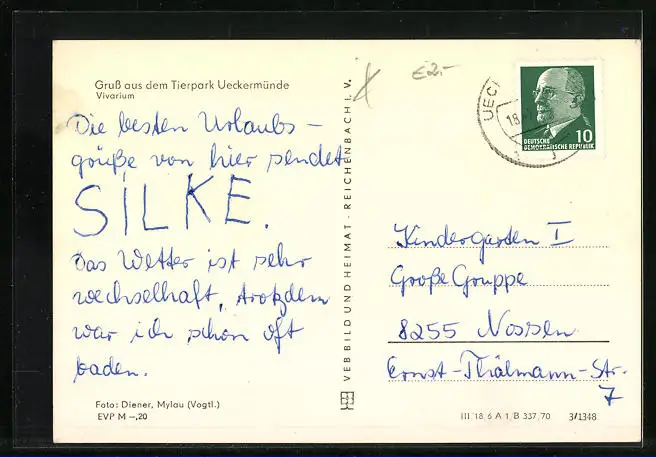 Gruß aus dem Tierpark Ueckermünde
Vivarium
Die besten Urlaubs-
grüße von hier sendet
SILKE.
Das Wetter ist sehr
wechselhaft, trotzdem
war ich schon oft
baden.
Foto: Diener, Mylau (Vogtl.)
EVP M -,20
VEB BILD UND HEIMAT · REICHENBACH I. V.
€2,-
UECK
18.
10
DEUTSCHE
DEMOKRATISCHE REPUBLIK
Kindergarten I
Große Gruppe
8255 Nossen
Ernst-Thälmann-Str.
7
III 18 6 A 1 B 337/70 3/1348